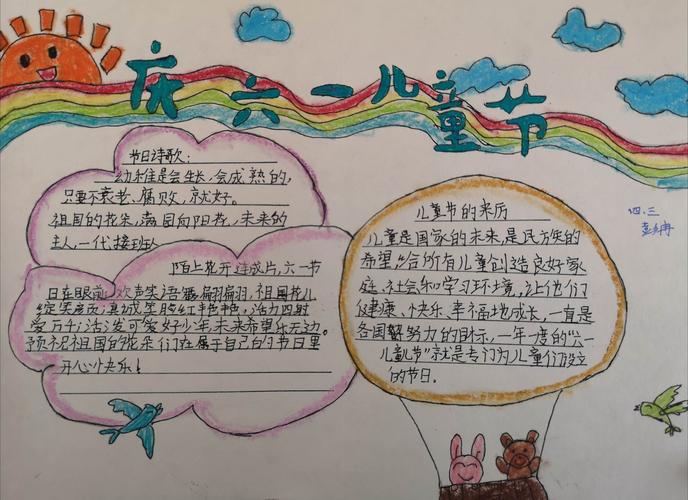 庆六一儿童节
节日诗歌:
幼稚是会生长,会成熟的,
只要不衰老、腐败,就好。
祖国的花朵,满园向阳花,未来的
主人一代接班人
陌上花开连成片,六一节
日在眼前,欢声笑语翩翩,祖国花儿
绽笑颜,真诚笑脸红艳艳,活力四射
爱万千,活泼可爱好少年,未来希望乐无边。
预祝祖国的花朵们在属于自己的节日里
开心快乐!
儿童节的来历
儿童是国家的未来,是民族的
希望,给所有儿童创造良好家
庭、社会和学习环境,让他们
健康、快乐、幸福地成长,一直是
各国努力的目标,一年一度的“六一
儿童节”就是专门为儿童们设立
的节日。
四.三